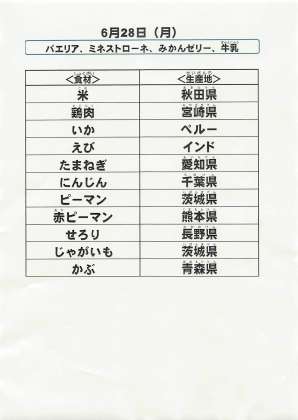 6月28日（月）
パエリア、ミネストローネ、みかんゼリー、牛乳
＜食材＞ ＜生産地＞
米 秋田県
鶏肉 宮崎県
いか ペルー
えび インド
たまねぎ 愛知県
にんじん 千葉県
ピーマン 茨城県
赤ピーマン 熊本県
せろり 長野県
じゃがいも 茨城県
かぶ 青森県